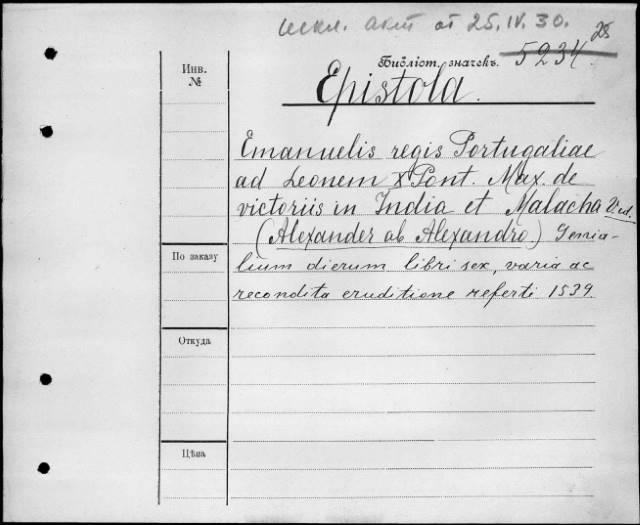 искл. акт от 25.IV.30.
28
Библіот. значекъ. 5234.
Инв.
№
Epistola.
Emanuelis regis Portugaliae
ad Leonem X Pont. Max. de
victoriis in India et Malacha V. ed.
(Alexander ab Alexandro) Genia-
lium dierum libri sex, varia ac
recondita eruditione referti 1539.
По заказу
Откуда
Цѣна